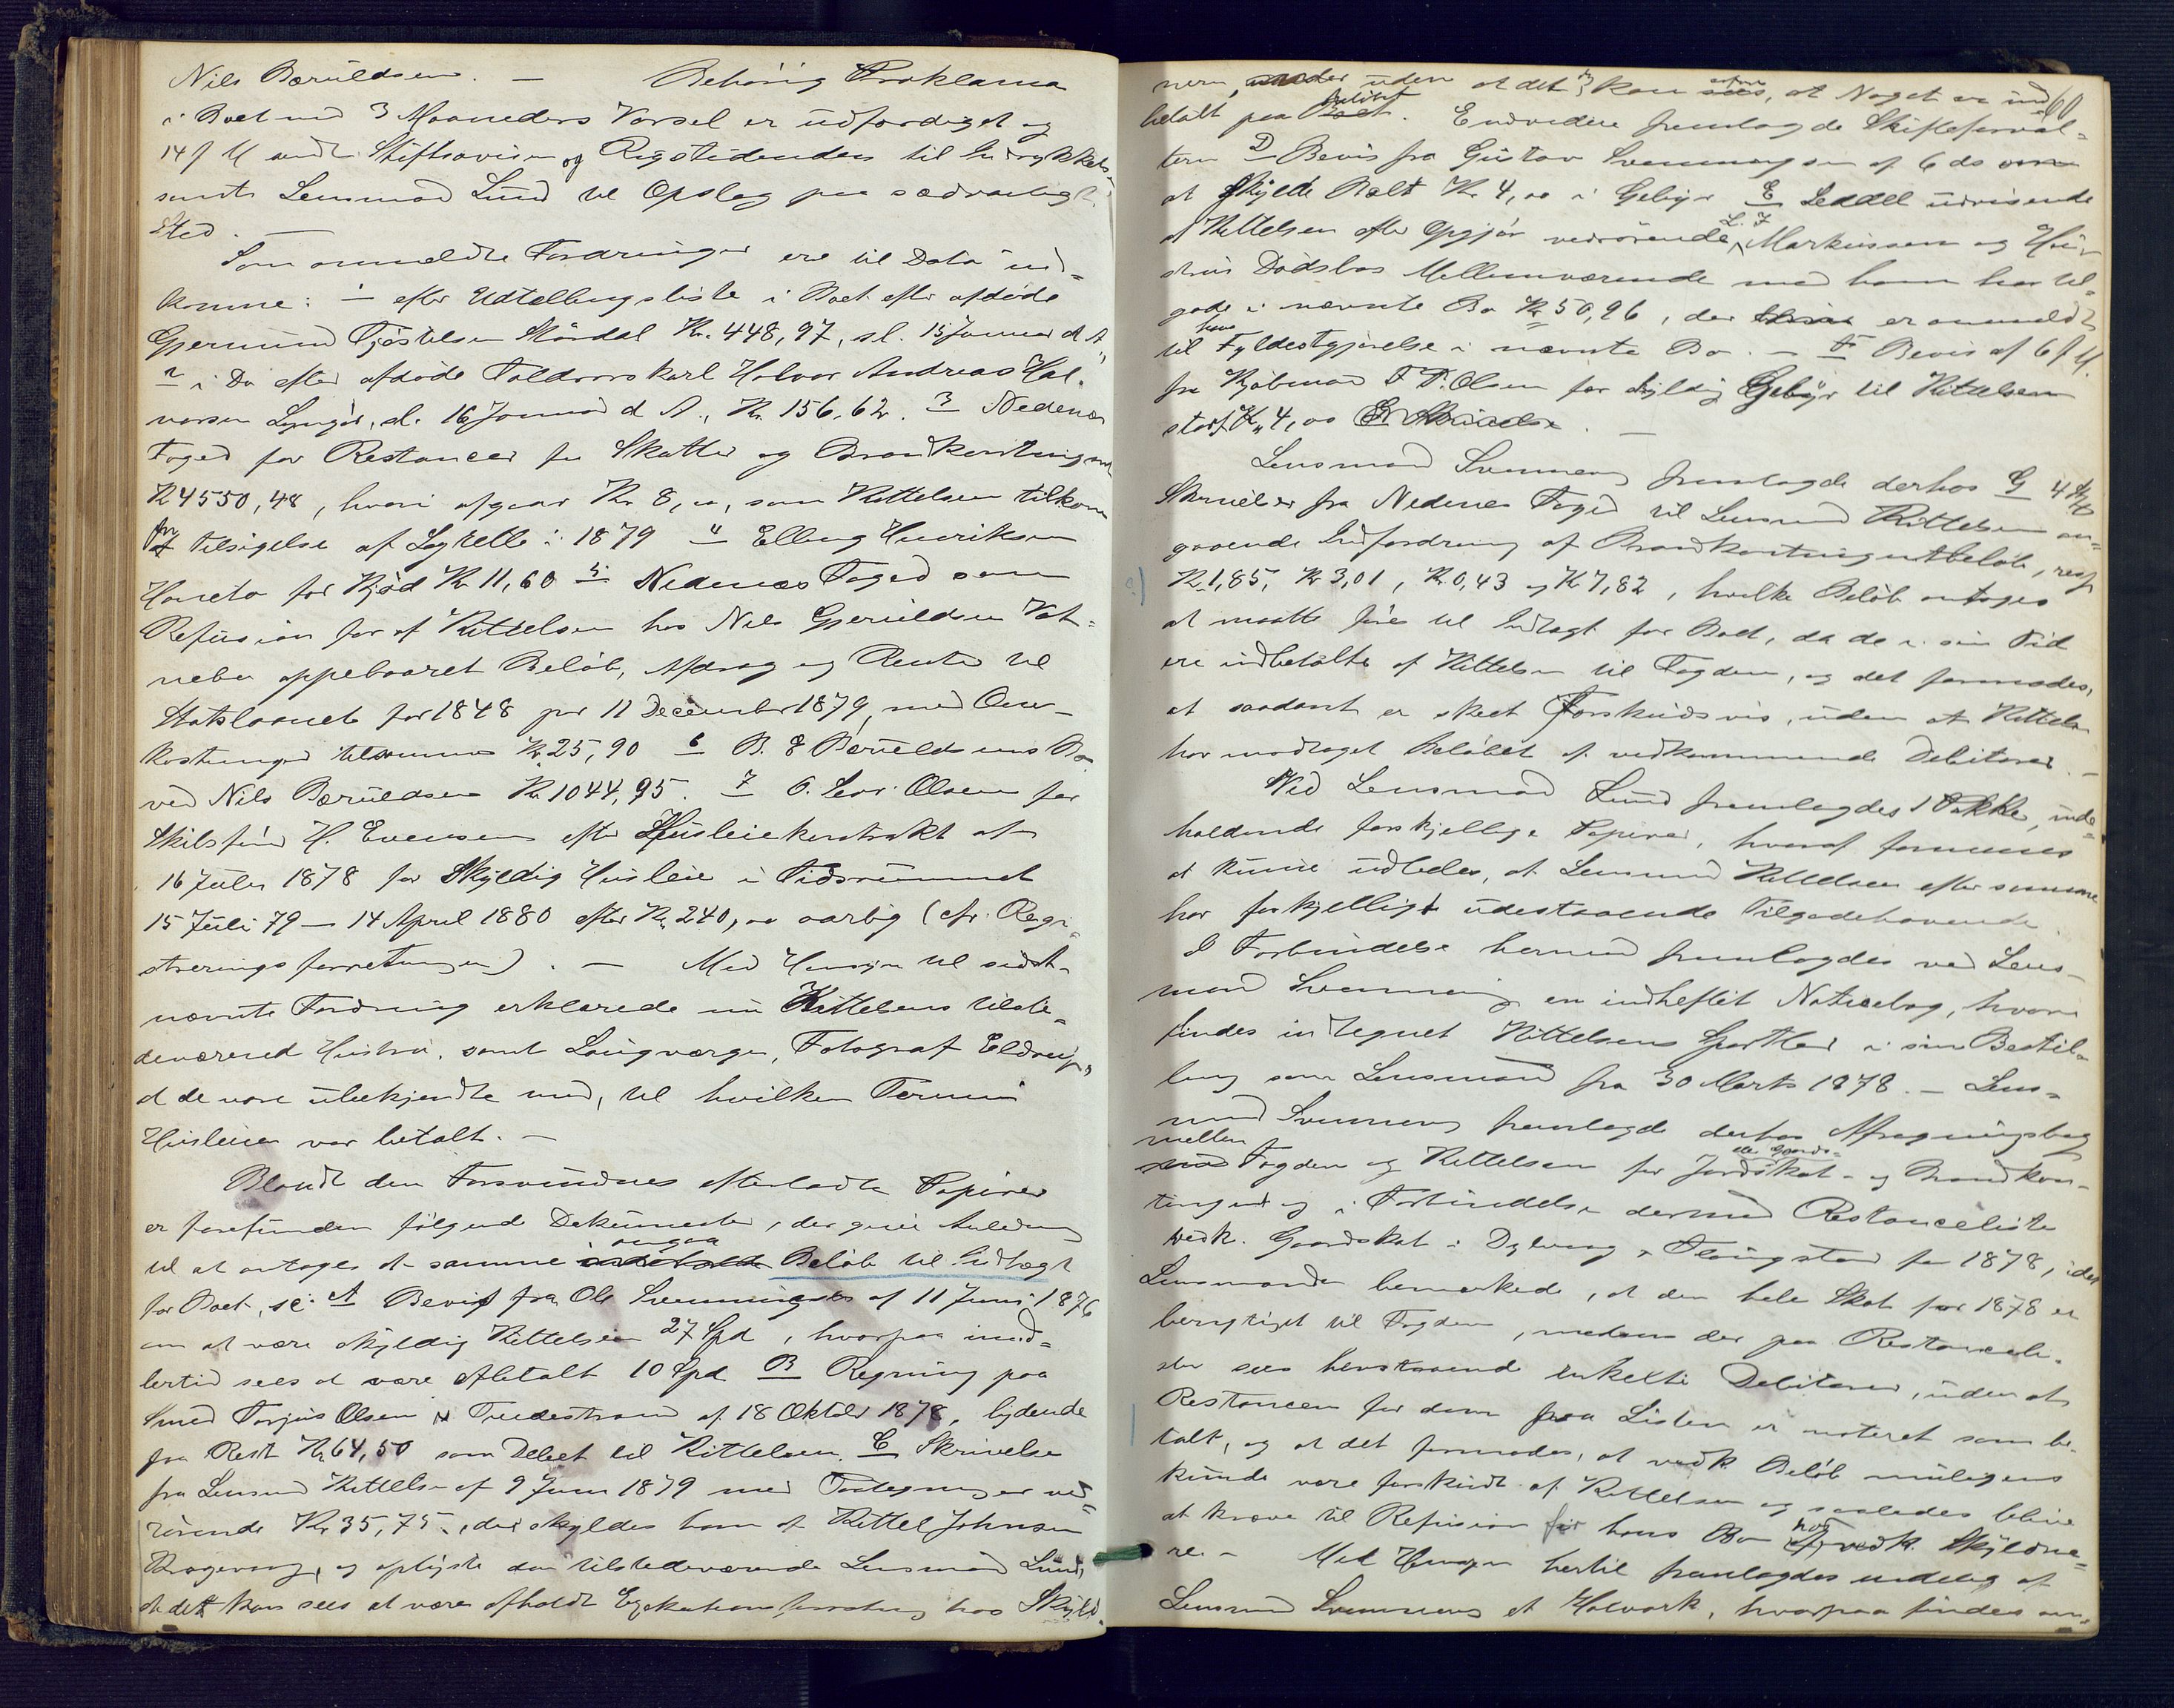 Nils Bæruldsen. — Behörig Proklama
i Boet med 3 Maaneders Varsel er udfærdiget og
14 f M sendt Stiftsavisen og Rigstidenden til Indrykkelse
samt Lensmand Lund til Opslag paa sædvanligt
Sted. —
Som anmeldte Fordringer ere til Dato ind=
komne: 1 efter Udtællingsliste i Boet efter afdöde
Gjermund Tjöstelsen Mördal Kr. 448,97, sl. 15 Januar d A
2 i Do efter afdöde Toldrorskarl Halvor Andreas Hal-
vorsen Lyngör, sl. 16 Januar d A., Kr. 156,62. 3 Nedenæs
Foged for Restancer for Skatter og Brandkontingent
Kr 4550,48, hvori afgaar Kr 8,00, som Kittelsen tilkom
for Tilsigelse af Lagrette i 1879 4 Elling Henriksen
for Kjöd Kr 11,60 5 Nedenæs Foged som
Refusion for af Kittelsen hos Nils Gjeruldsen Vat=
nebu oppebaaret Belöb, Afdrag og Renter til
Statslaanet for 1848 pr 11 December 1879, med Om-
kostninger tilsammen Kr 25,90 6 B. & Bæruldsens Bo
ved Nils Bæruldsen Kr. 1044,95. 7 O. Olsen for
Skibsförer H. Evensen efter Husleiekontrakt af
16 Juli 1878 for Skyldig Husleie i Tidsrummet
15 Juli 79 — 14 April 1880 efter Kr. 240,00 aarlig (cfr. Regi=
streringsforretningen). — Med Hensyn til sidst-
nævnte Fordring erklærede nu Kittelsens tilste-
deværende Hustru, samt Laugværge, Fotograf
at de vare ubekjendte med, til hvilken Termin
Husleien var betalt. —
Blandt den Forsvundnes efterladte Papirer
er forefunden fölgende Dokumenter, der give Anledning
til at antages at samme angaa Belöb til Indtægt
for Boet, sc: A Bevis fra Ole Svenningsen af 11 Juni 1876
om at være skyldig Kittelsen 27 Spd, hvorpaa imid=
lertid sees at være afbetalt 10 Spd B Regning paa
Smed Torjus Olsen Tvedestrand af 18 Oktober 1878, lydende
paa Rest Kr 64,50 som Debet til Kittelsen. C Skrivelse
fra Lensmd Kittelsen af 9 Juni 1879 med Paategninger ved=
rörende Kr. 35,75, der skyldes ham af Kittel Johnsen
og oplyste den tilstedeværende Lensmand Lund,
at det kan sees at være afholdt Exekutionsforretning hos Skyld-
60
neren, uden at det kan erfares, at Noget er ind=
betalt paa Belöbet. Endvidere fremlagde Skifteforval=
teren D Bevis fra Gustav Svenningsen af 6 ds om
at skylde Kr. 4,00 i Gebyr E Seddel udvisende
at Kittelsen efter Opgjör vedrörende L. J. Markussen og Hu-
strus Dödsbos Mellemværende med ham har til=
gode i nævnte Bo Kr 50,96, der er anmeldt
til Fyldestgjörelse i nævnte Bo. — F Bevis af 6 f M.
fra Kjöbmand F. T. Olsen for skyldig Gebyr til Kittelsen
stort Kr. 4,00. —
Lensmand Svenning fremlagde derhos G 4
Skrivelser fra Nedenes Foged til Lensmd Kittelsen an=
gaaende Indfordring af Brandkontingentbelöb, resp
Kr 1,85, Kr 3,01, Kr 0,43 og Kr 7,82, hvilke Belöb antages
at maatte före til Indtægt for Boet, da de i sin Tid
ere indbetalte af Kittelsen til Fogden, og det formodes,
at saadant er skeet Forskudsvis, uden at Kittelsen
har modtaget Belöbet af vedkommende Debitorer. —
Ved Lensmand Lund fremlagdes 1 Pakke, inde=
holdende forskjellige Papirer, hvoraf formenes
at kunne udledes, at Lensmand Kittelsen efter samme
har forskjelligt udestaaende Tilgodehavende.
I Forbindelse hermed fremlagdes ved Lens-
mand Svenning en indheftet Notitsebog, hvori
findes indtegnet Kittelsens Sportler i sin Bestil=
ling som Lensmand fra 30 Marts 1878. — Lens=
mand Svenning fremlagde derhos Afregningsbog
mellem Fogden og Kittelsen for Jordskat- eller Gaards- og Brandkon-
tingent og i Forbindelse dermed Restanceliste
vedk. Gaardskat i Dybvaag og Flangstad for 1878, idet
Lensmanden bemærkede, at den hele Skat for 1878 er
berigtiget til Fogden, medens der paa Restanceli-
sten sees henstaaende enkelte Debitorer, uden at
Restancen for dem paa Listen er noteret som be-
talt, og at det formodes, at vedk. Belöb muligens
kunde være forskudt af Kittelsen og saaledes blive
at kræve til Refusion for hans Bo hos vedk. Skyldne=
re. — Med Hensyn hertil fremlagdes endelig af
Lensmand Svenning et Halvark, hvorpaa findes an=